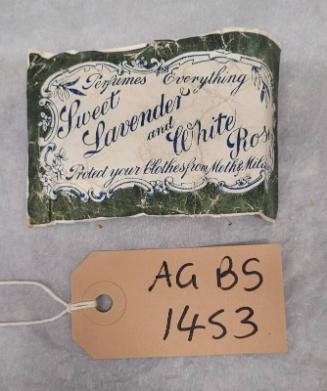 Perfumes Everything
Sweet
Lavender
and
White Rose
Protect your Clothes from Moths, Mildew
AG BS
1453